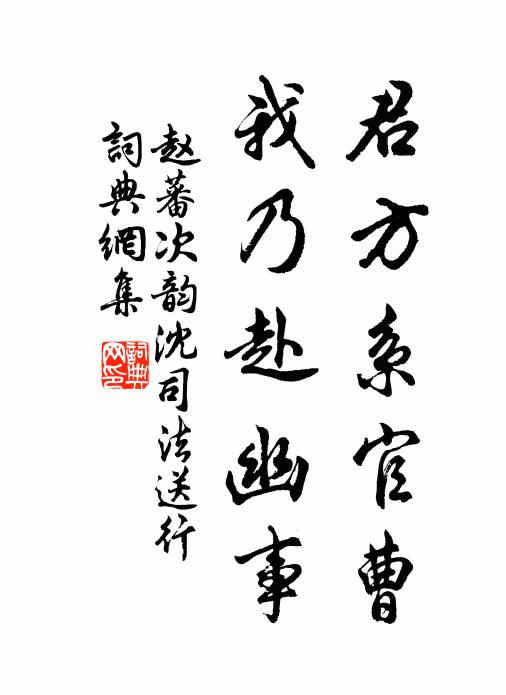 君方系官曹
我乃赴幽事
赵蕃次韵沈司法送行
詞典網集
詞典网印